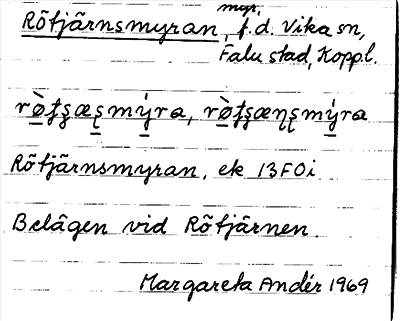 Rötjärnsmyran, myr, f.d. Vika sn,
Falu stad, Koppl.
Rötjärnsmyran, ek 13F0i
Belägen vid Rötjärnen.
Margareta Andér 1969